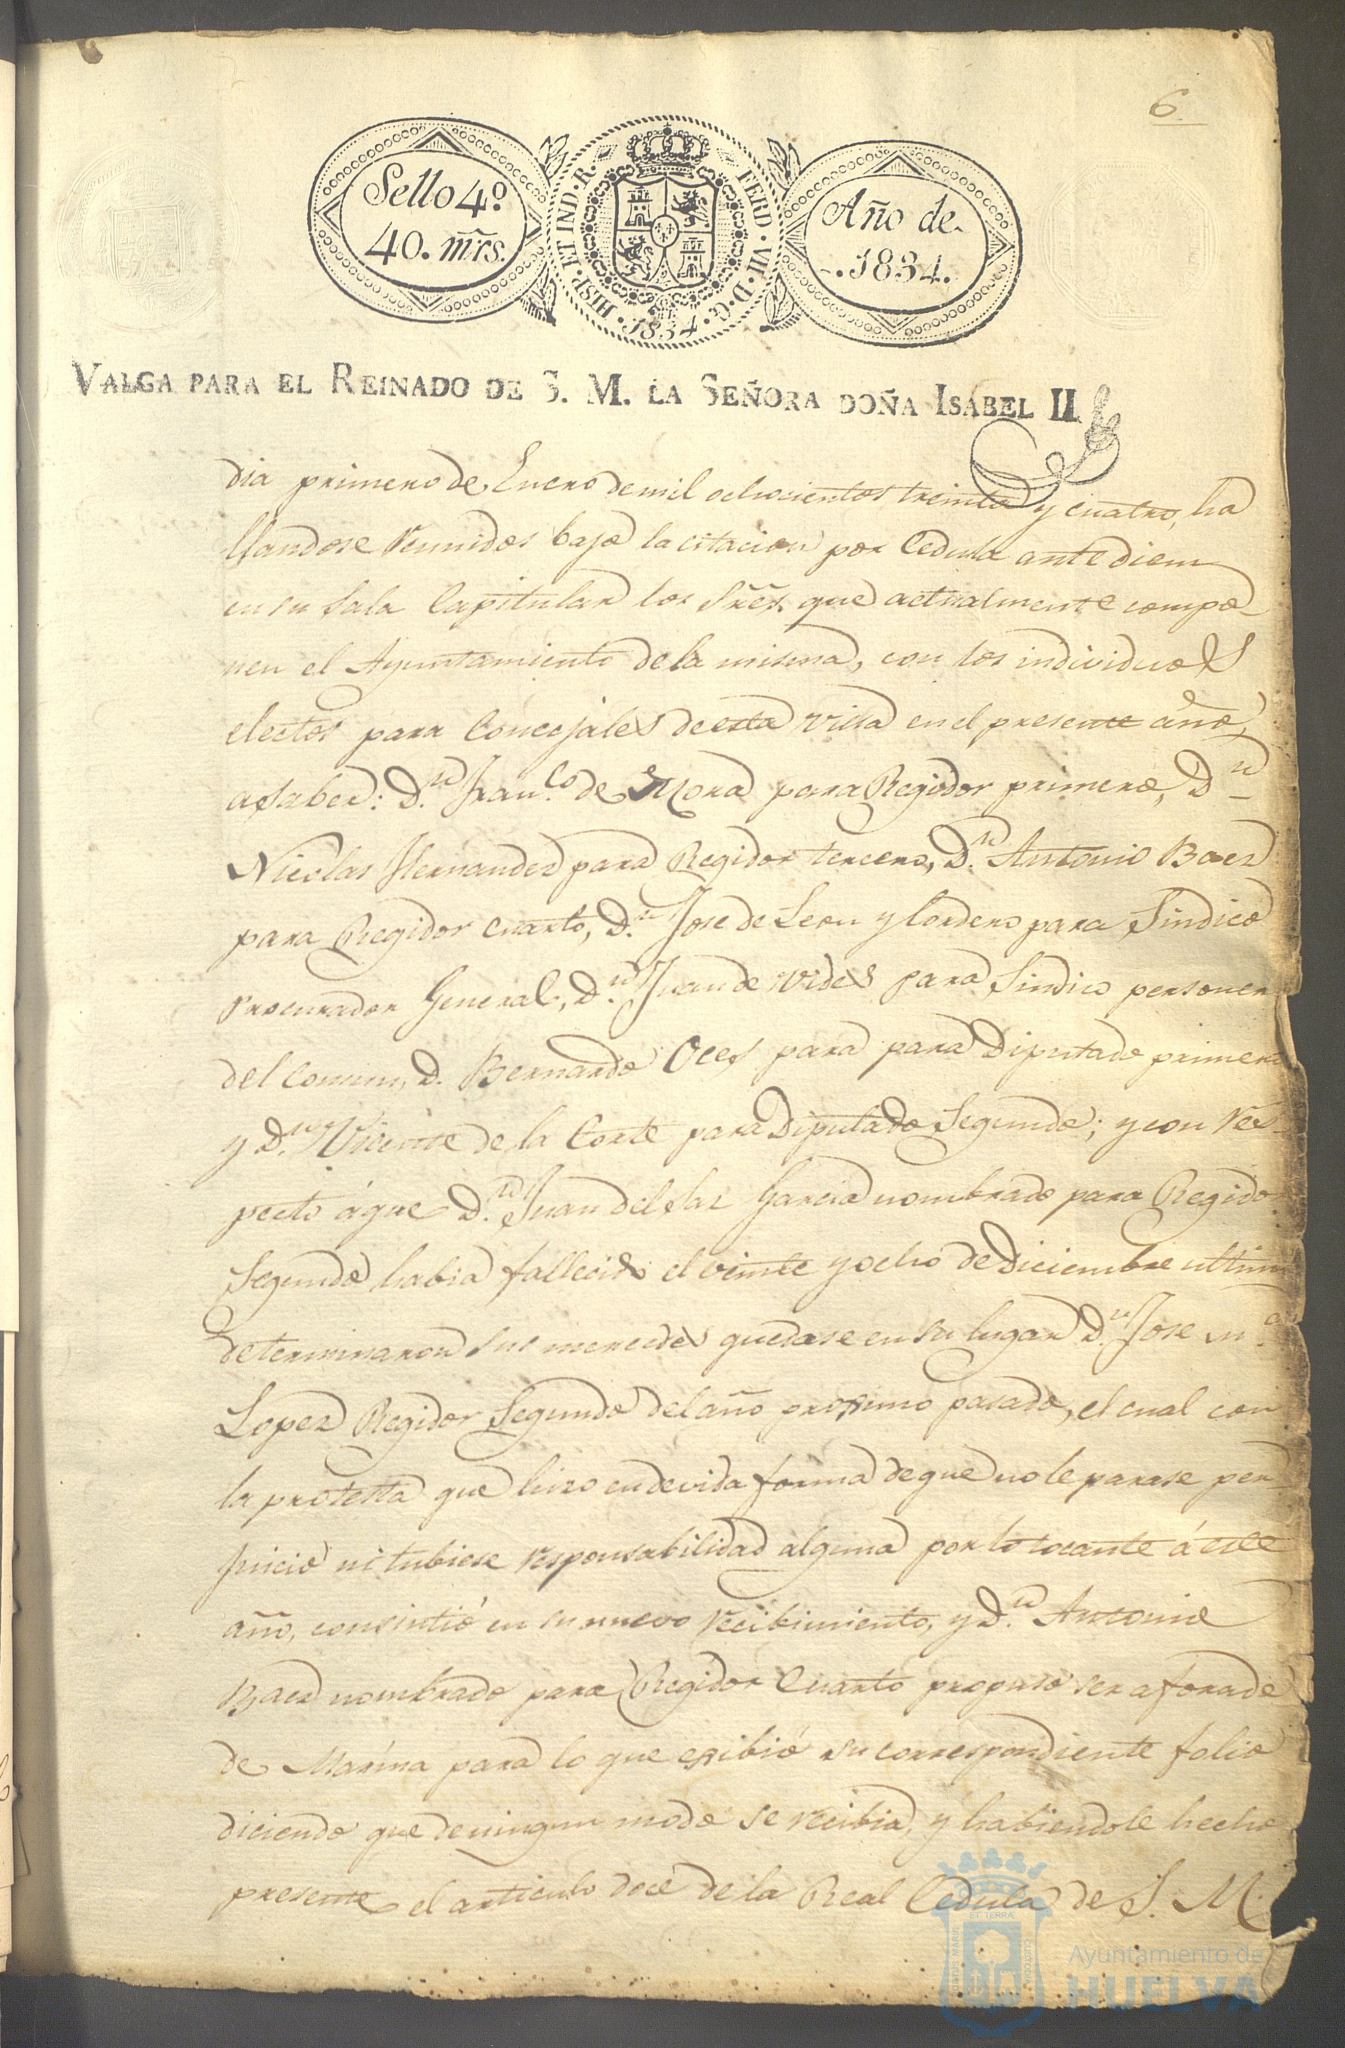 6
Sello 4º
40. mrs.
HISP. ET IND. R. FERD. VII. D. G. 1834.
Año de
1834.
VALGA PARA EL REINADO DE S. M. LA SEÑORA DOÑA ISABEL II
dia primero de Enero de mil ochocientos treinta y cuatro, ha
llandose reunidos bajo la citacion por Cedula ante diem
en su sala Capitular los Sres. que actualmente compo
nen el Ayuntamiento de la misma, con los individuos
electos para Concejales de esta villa en el presente año,
a saber: D.n Fran.co de Mora para Regidor primero, D.n
Nicolas Hernandez para Regidor tercero, D.n Antonio Baez
para Regidor cuarto, D.n Jose de Leon y Cordero para Sindico
Procurador General, D.n Juan de Vides para Sindico personero
del Comun, D. Bernardo Oces para para Diputado primero
y D.n Vicente de la Corte para Diputado Segundo; y con res-
pecto á que D.n Juan del Saz Garcia nombrado para Regidor
Segundo habia fallecido el veinte y ocho de Diciembre ultimo
determinaron sus mercedes quedase en su lugar D.n Jose M.a
Lopez Regidor Segundo del año prosimo pasado, el cual con
la protesta que hizo en devida forma de que no le parase per
juicio ni tubiese responsabilidad alguna por lo tocante á este
año, consintió en su nuevo recibimiento, y D.n Antonio
Baez nombrado para Regidor Cuarto propuso ser aforado
de Marina para lo que esibió su correspondiente folio
diciendo que de ningun modo se recibia, y habiendole hecho
presente el articulo doce de la Real Cedula de S. M.
Ayuntamiento de
HUELVA